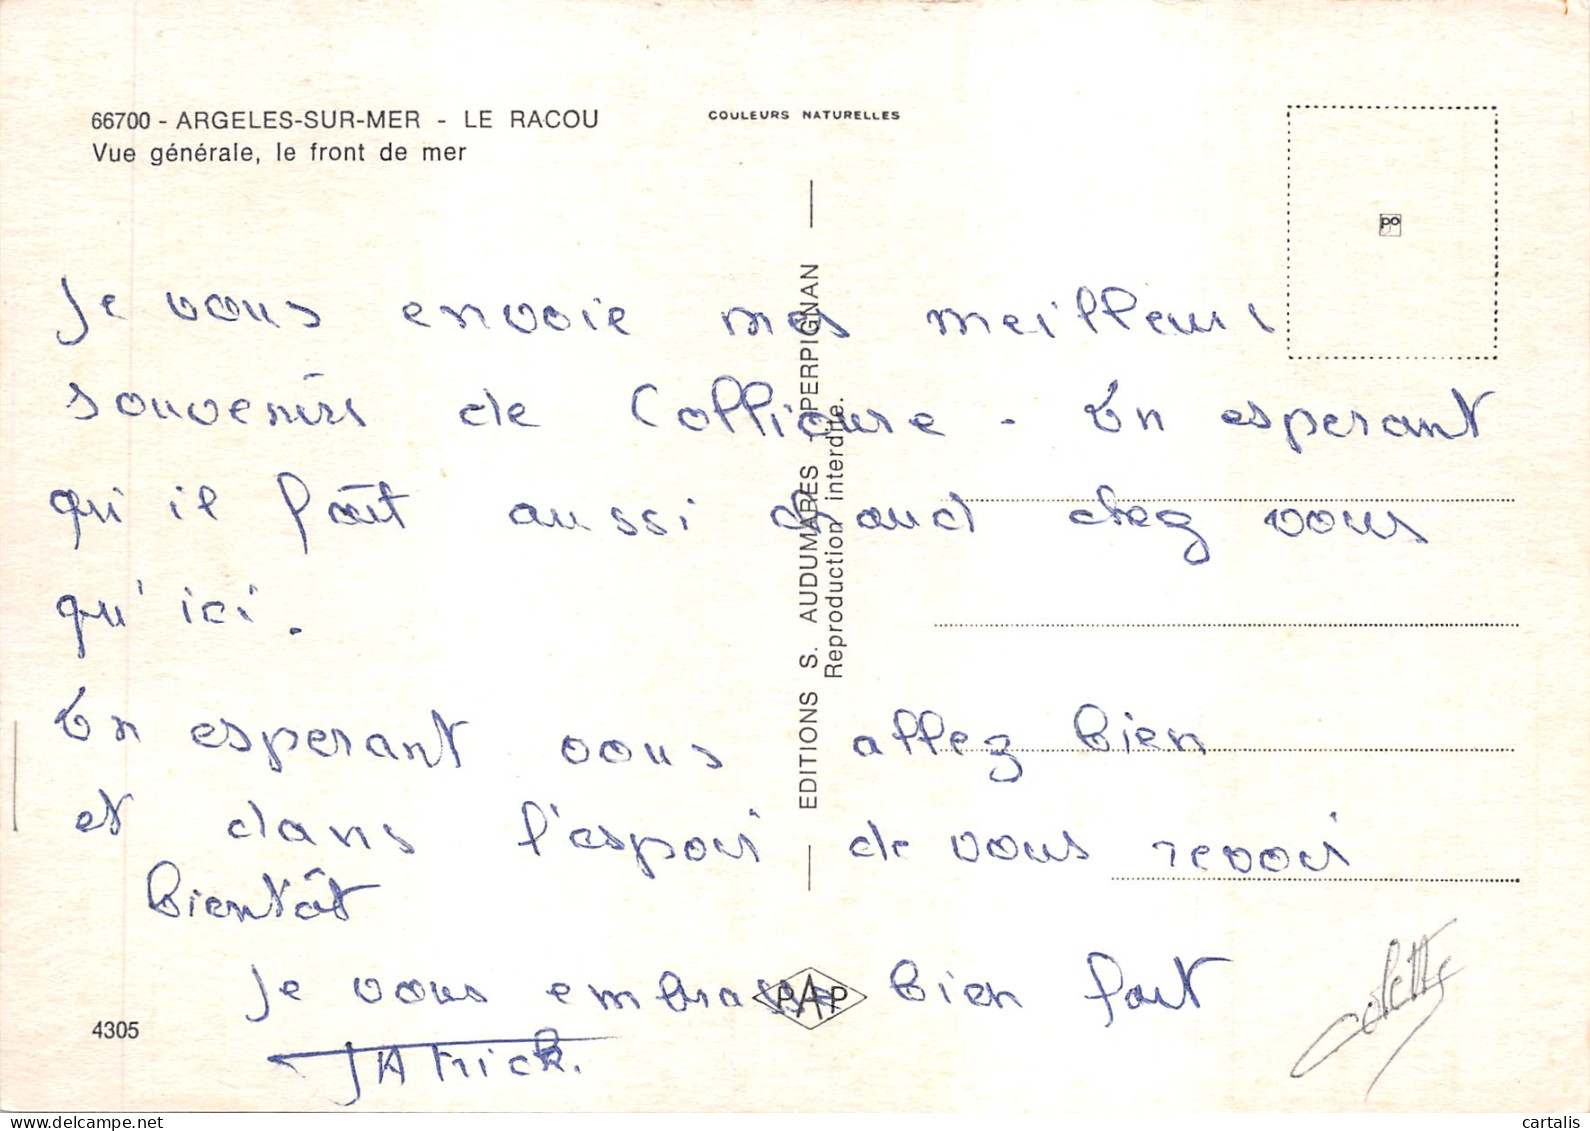 66700 - ARGELES-SUR-MER - LE RACOU
Vue générale, le front de mer
COULEURS NATURELLES
po
Je vous envoie mes meilleurs
souvenirs de Collioure - En esperant
qu'il fait aussi chaud chez vous
qu'ici.
En esperant vous allez bien
et dans l'espoir de vous revoir
bientôt
Je vous embrasse bien fort
PAtrick.
Colette
EDITIONS S. AUDUMARES - PERPIGNAN
Reproduction interdite.
PAP
4305
delcampe.net
cartalis